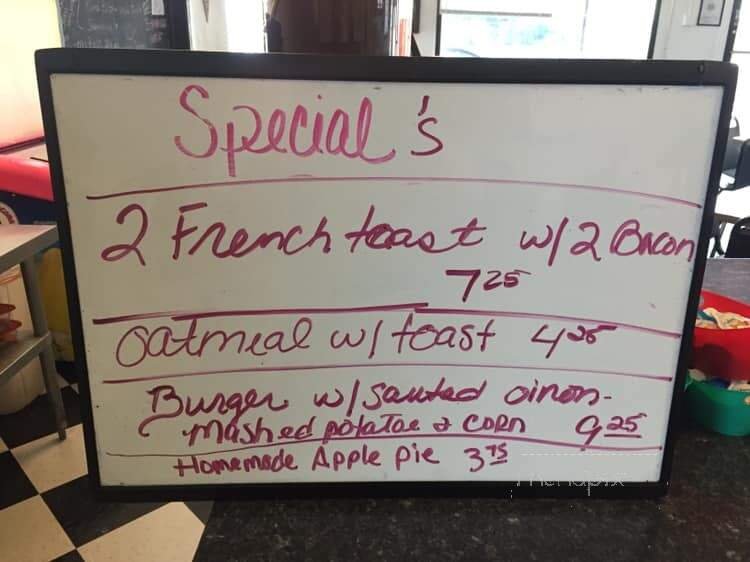 Special's
2 French toast w/2 Bacon
7 25
oatmeal w/ toast 4 25
Burger w/ sauted oinon-
mashed potatoe & corn 9 25
Homemade Apple Pie 3 75
menupix